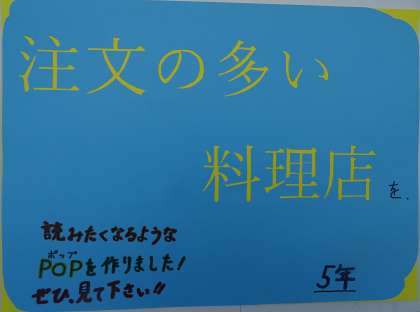 注文の多い
料理店を、
読みたくなるような
POPを作りました!
ポップ
ぜひ、見て下さい!!
5年